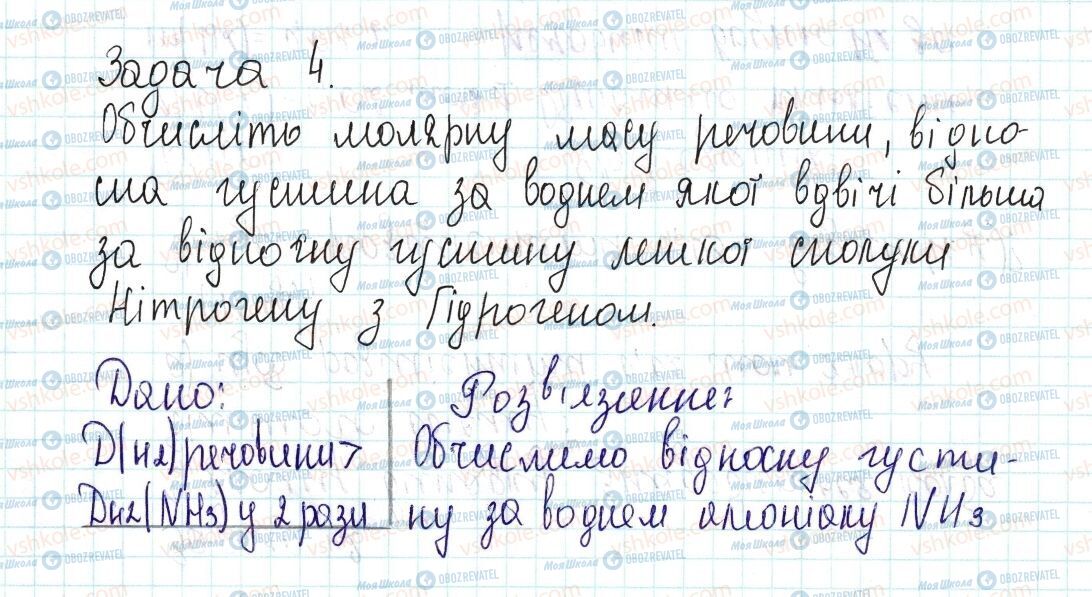 Задача 4.
Обчисліть молярну масу речовини, відно-
сна густина за воднем якої вдвічі більша
за відносну густину леткої сполуки
Нітрогену з Гідрогеном.
Дано:
D(H2) речовини >
DH2(NH3) у 2 рази
Розв'язання:
Обчислимо відносну густи-
ну за воднем амоніаку NH3